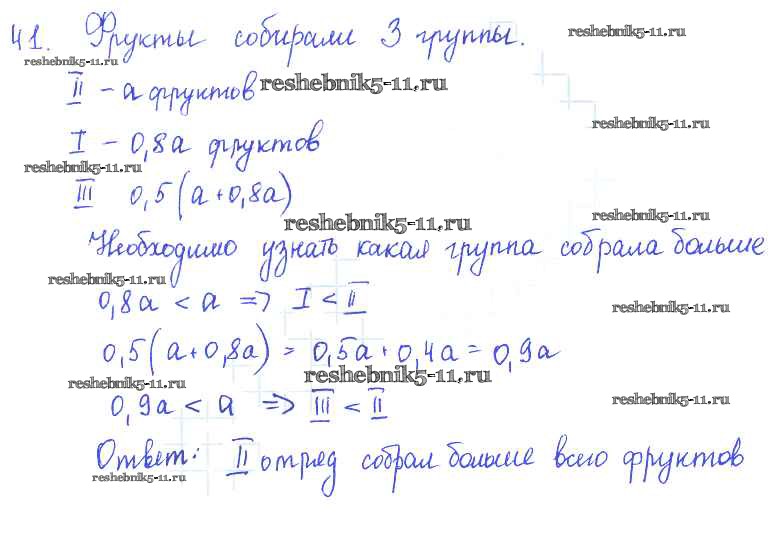 41. Фрукты собирали 3 группы.
reshebnik5-11.ru
reshebnik5-11.ru
II – а фруктов
reshebnik5-11.ru
reshebnik5-11.ru
I – 0,8а фруктов
reshebnik5-11.ru
III 0,5(а+0,8а)
reshebnik5-11.ru
reshebnik5-11.ru
Необходимо узнать какая группа собрала больше
reshebnik5-11.ru
0,8а < а => I < II
reshebnik5-11.ru
0,5(а+0,8а) = 0,5а + 0,4а = 0,9а
reshebnik5-11.ru
reshebnik5-11.ru
0,9а < а => III < II
reshebnik5-11.ru
Ответ: II отряд собрал больше всего фруктов
reshebnik5-11.ru